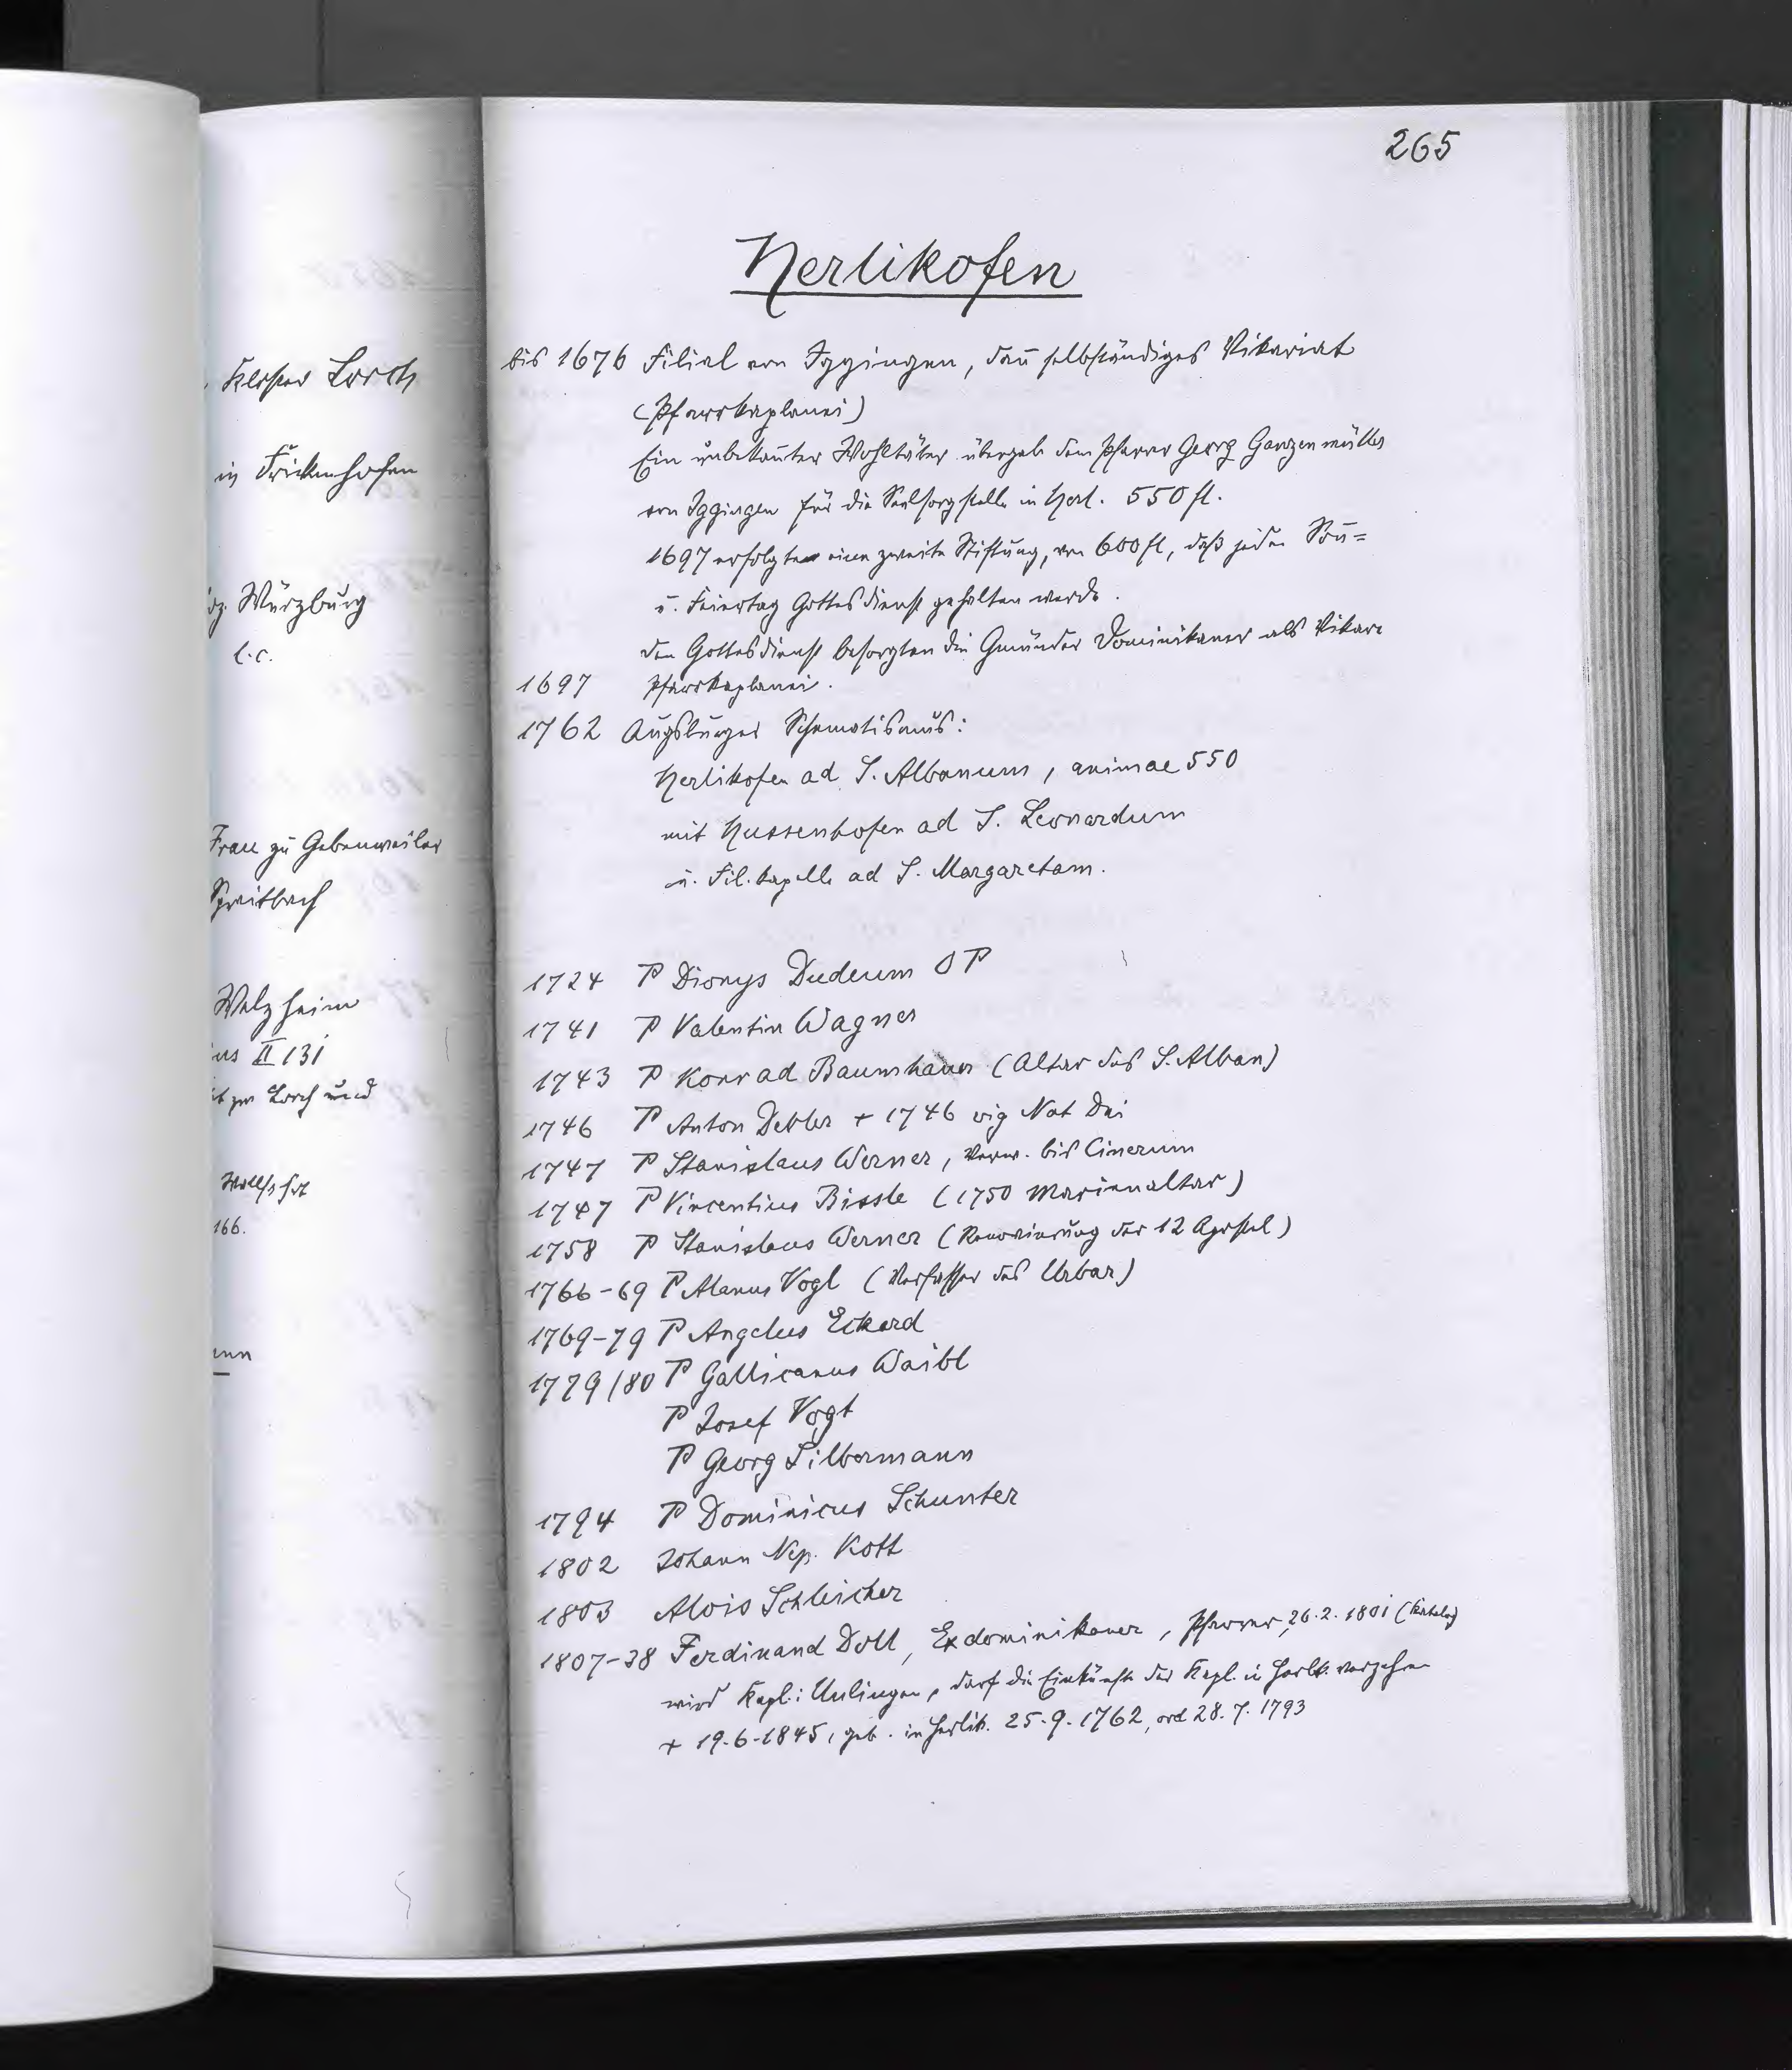 265
Herlikofen
bis 1676 Filial von Iggingen, dan̄ selbständiges Vikariat
(Pfarrkaplanei)
Ein unbekan̄ter Wohltäter übergab dem Pfarrer Georg Ganzenmüller
von Iggingen für die Seelsorgstelle in Herl. 550 fl.
1697 erfolgte eine zweite Stiftung, von 600 fl, daß jeden Son̄=
u. Feiertag Gottesdienst gehalten werde.
den Gottesdienst besorgten die Gmünder Dominikaner als Vikare
1697 Pfarrkaplanei.
1762 Augsburger Schematismus:
Herlikofen ad S. Albanum, animae 550
mit Hussenhofen ad S. Leonardum
u. Fil. kapelle ad S. Margaretam.
1724 P Dionys Dudeum OP
1741 P Valentin Wagner
1743 P Konrad Baumhauer (Altar des S. Alban)
1746 P Anton Debler + 1746 vig Nat Dei
1747 P Stanislaus Werner, Verw. bis Cinerum
1747 P Vincentius Bissle (1750 Marienaltar)
1758 P Stanislaus Werner (Renovierung der 12 Apostel)
1766-69 P Alanus Vogl (Verfasser des Urbar)
1769-79 P Angelus Eckard
1779/80 P Gallicanus Waibl
P Josef Vogt
P Georg Silbermann
1794 P Dominicus Schunter
1802 Johann Nep. Kott
1803 Alois Schleicher
1807-38 Ferdinand Doll, Exdominikaner, Pfarrer, 26.2.1801 (Katalog)
wird Kapl. i Unlingen, darf die Einkünfte der Kapl. in Herlik. verzehren
+ 19.6.1845, geb. in Herlik. 25.9.1762, ord 28.7.1793
Kloster Lorch
in Frickenhofen
Würzburg
l.c.
Frau zu Gebenweiler
Spraitbach
Welzheim
II 131
Lorch und
166.